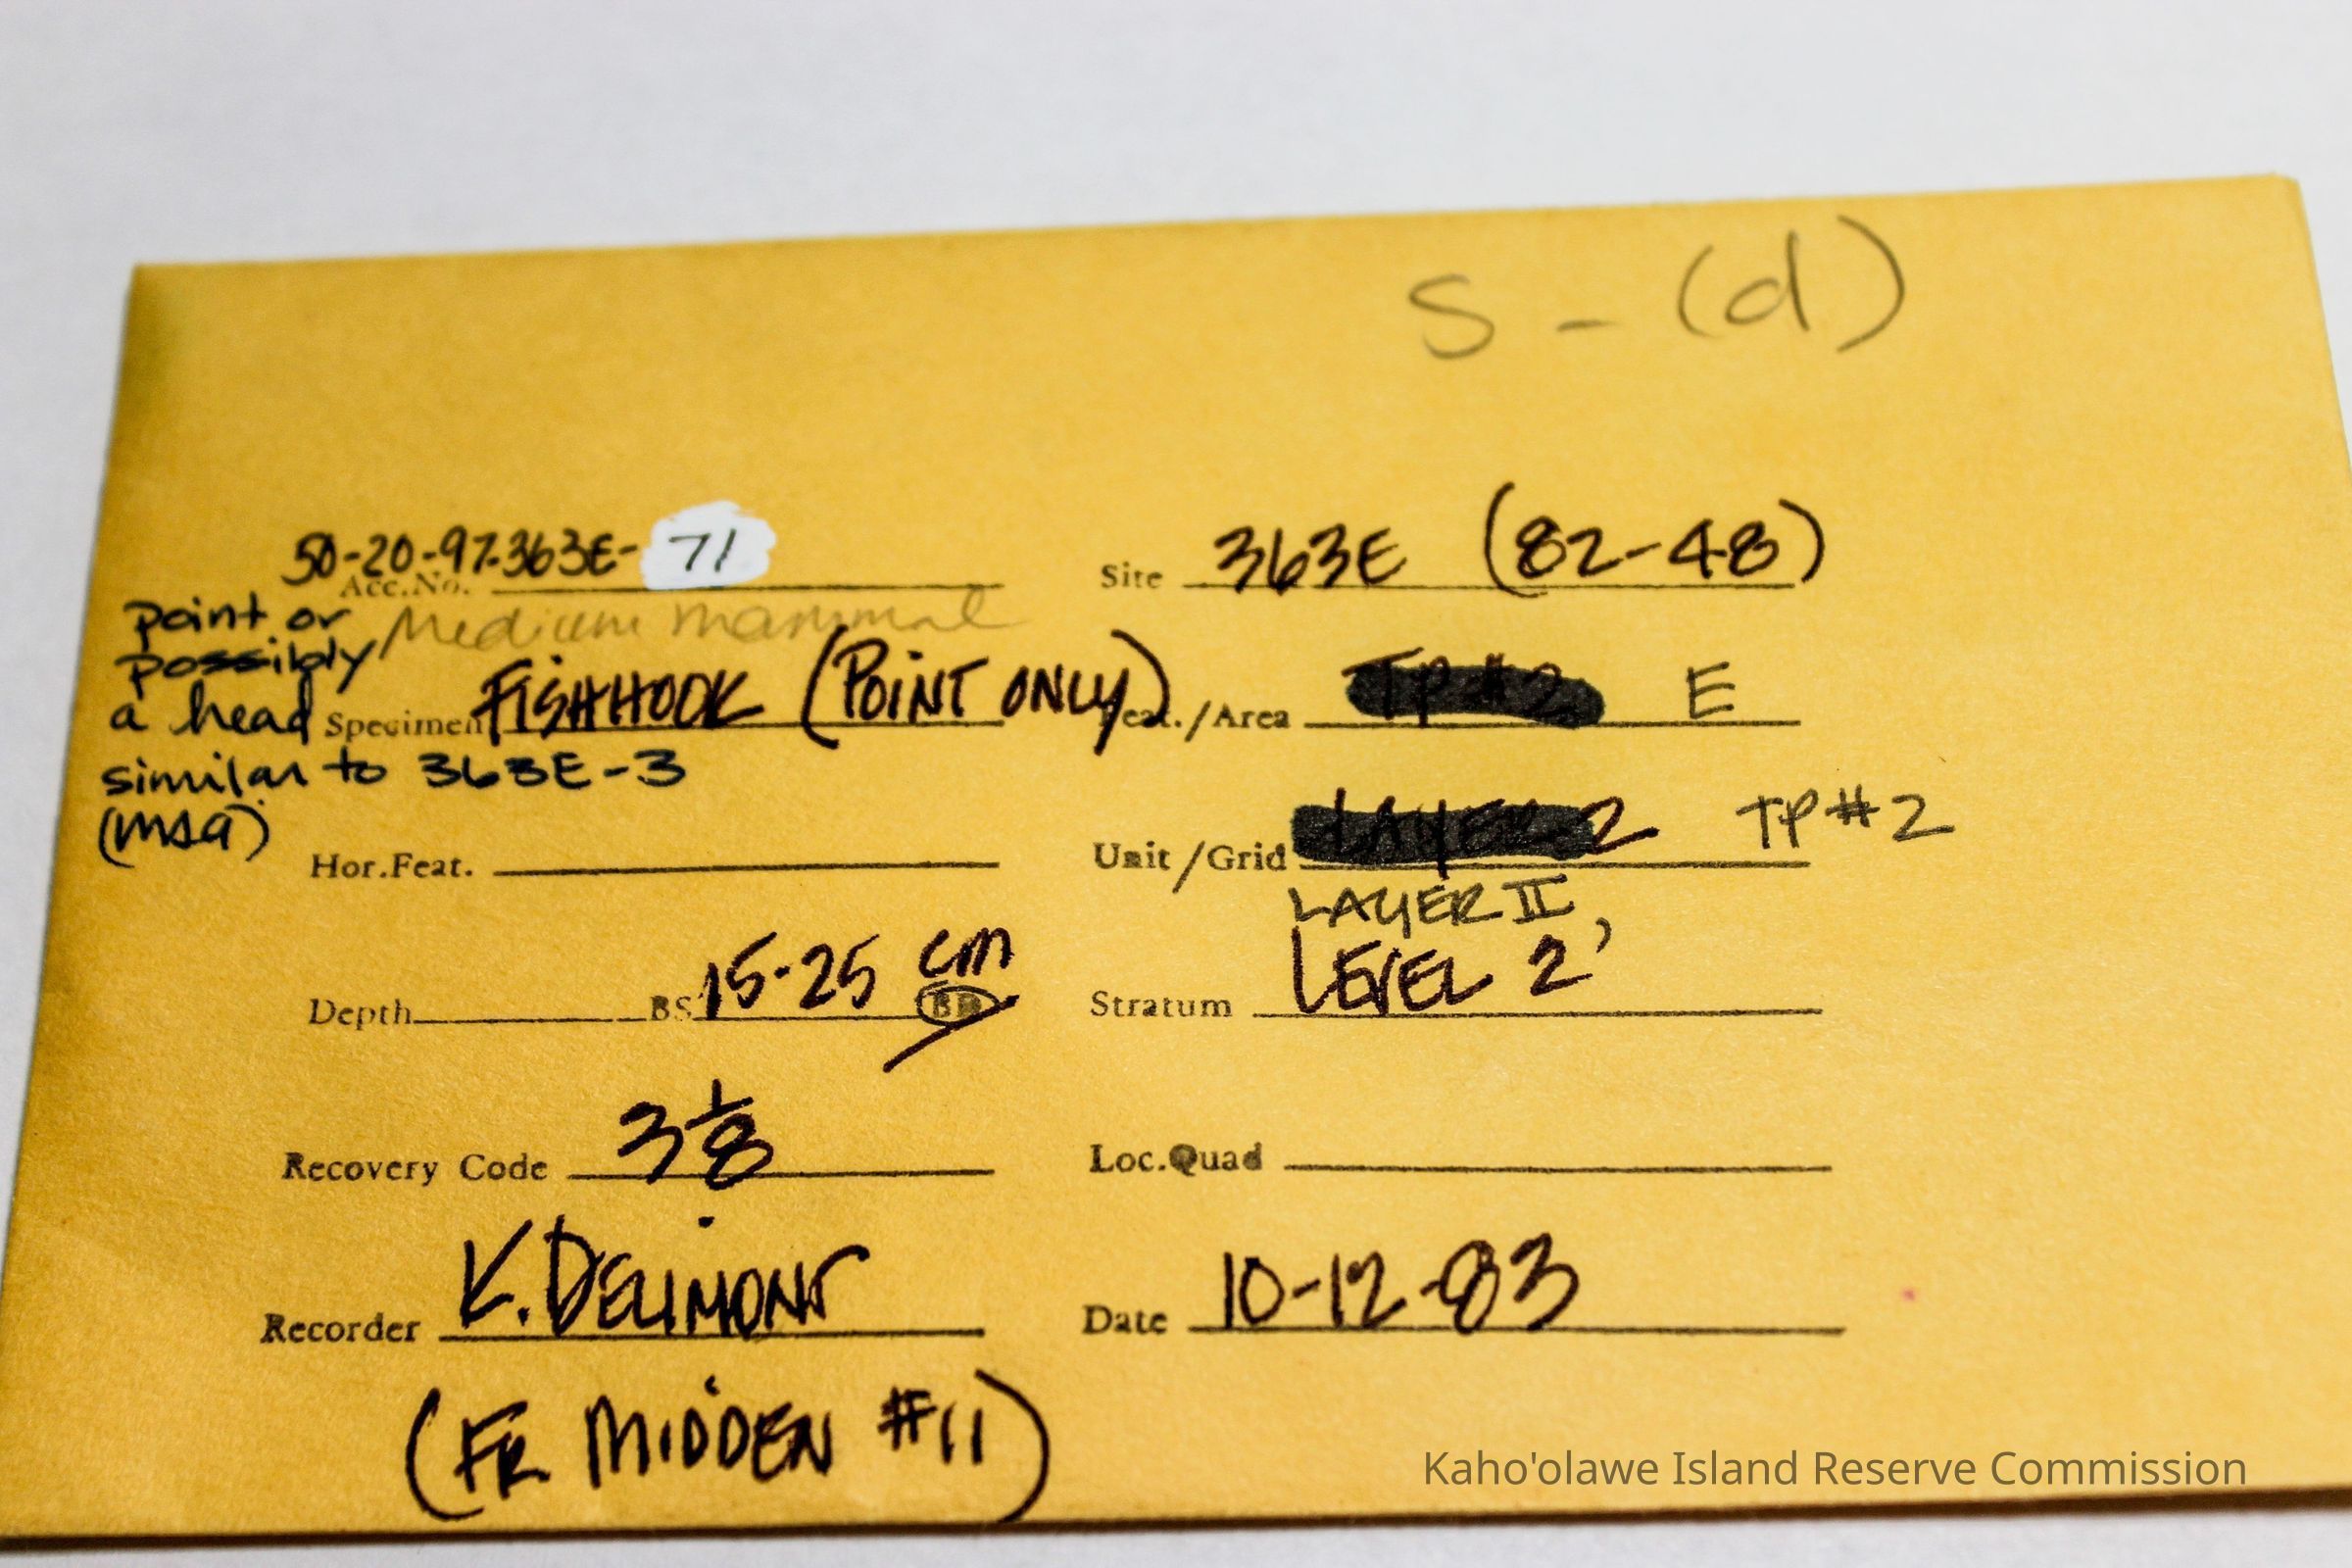 S - (d)
50-20-97-363E- 71
Acc.No.
Site 363E (82-48)
point or
possibly
a head
similar to 363E-3
(MSA)
Medium mammal
Specimen FISHHOOK (POINT ONLY)
Feat./Area TP #2 E
Hor.Feat.
Unit/Grid LAYER 2 TP #2
LAYER II,
Depth BS 15-25 cm BD
Stratum LEVEL 2
Recovery Code 3 1/8
Loc.Quad
Recorder K. DELIMONT
Date 10-12-83
(FR MIDDEN #11)
Kaho'olawe Island Reserve Commission